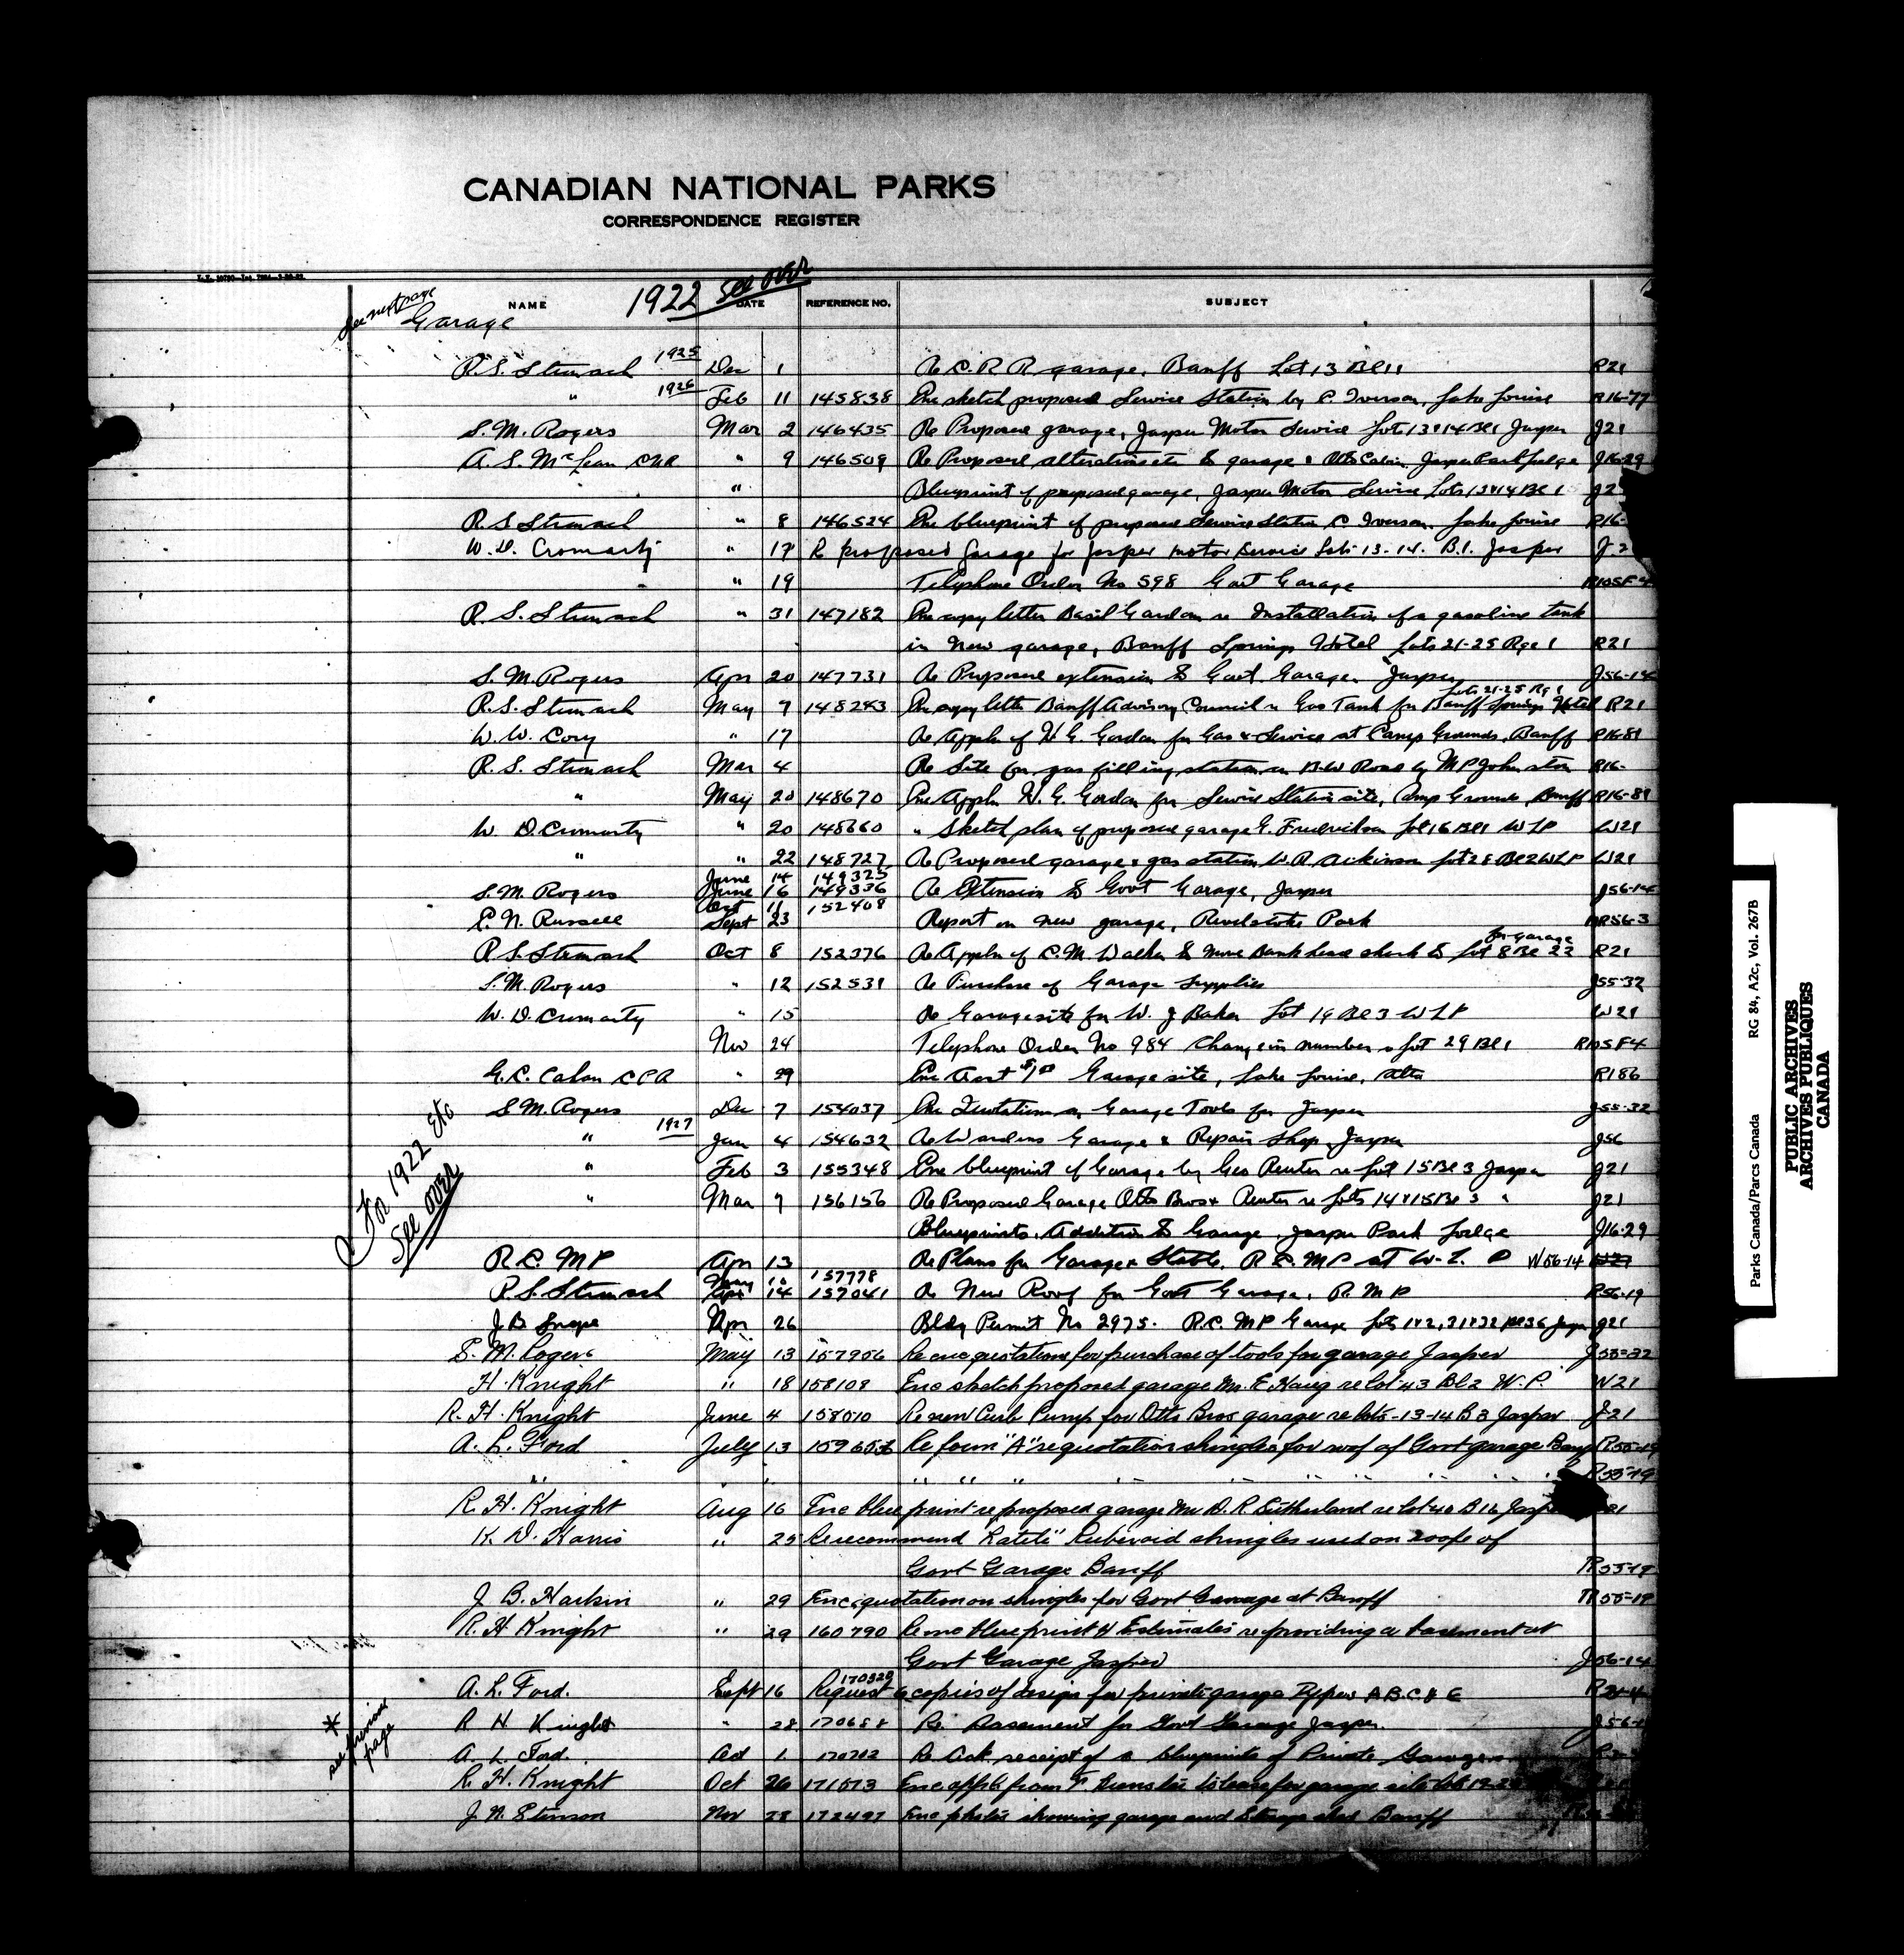 CANADIAN NATIONAL PARKS
CORRESPONDENCE REGISTER
NAME 1922 See over DATE REFERENCE NO. SUBJECT
See next page
Garage
R.S. Stronach 1925 Dec 1 Re C.P.R. garage, Banff Lot 13 Bl 11 R21
" 1926 Feb 11 145838 Enc sketch proposed Service Station by C. Iverson, Lake Louise R16-77
S. M. Rogers Mar 2 146435 Re Proposed garage, Jasper Motor Service Lot 13 & 14 Bl 1 Jasper J21
A. S. McLean CNR " 9 146509 Re Proposed alterations etc to garage & Otto Cabin Jasper Park Lodge J16-29
" Blueprint of proposed garage, Jasper Motor Service Lots 13 & 14 Bl 1
R. S. Stronach " 8 146524 Enc blueprint of proposed Service Station C Iverson. Lake Louise R16-
W. D. Cromarty " 17 Re proposed Garage for Jasper Motor Service Lots 13-14. B.1. Jasper
" 19 Telephone Order No 598 Govt Garage R105F4
R. S. Stronach " 31 147182 Enc copy letter Basil Gardom re Installation of a gasoline tank
in New garage, Banff Springs Hotel Lots 21-25 Rge 1 R21
S. M. Rogers Apr 20 147731 Re Proposed extension to Govt. Garage. Jasper J56-14
Lots 21-25 Rg 1
R. S. Stronach May 7 148243 Enc copy letter Banff Advisory Council re Gas Tank for Banff Springs Hotel R21
W. W. Cory " 17 Re Appln of W. G. Gordon for Gas & Service at Camp Grounds, Banff R16-81
R. S. Stronach Mar 4 Re Site for gas filling station on B-W Road by M P Johnston R16-
" May 20 148670 Enc Appln W. G. Gordon for Service Station site, Camp Grounds Banff R16-81
W. D. Cromarty " 20 148660 " Sketch plan of proposed garage G. Fredrickson Lot 16 Bl 1 W L P W21
" " 22 148727 Re Proposed garage & gas station W. R. Dickinson Lot 28 Bl 2 W L P W21
June 14 149325
S. M. Rogers June 16 149336 Re Extension to Govt Garage, Jasper J56-14
Oct 11 152408
E. N. Russell Sept 23 Report on new garage, Revelstoke Park MR56-3
for garage
R. S. Stronach Oct 8 152376 Re Appln of C. M. Walker to move Bankhead shack to Lot 8 Bl 22 R21
S. M. Rogers " 12 152531 Re Purchase of Garage Supplies J55-32
W. D. Cromarty " 15 Re Garage site for W. J Baker Lot 19 Bl 3 W L P W21
Nov 24 Telephone Order No 984 Change in number Lot 29 Bl 1 R105F4
G. C. Cahan CPR " 29 Enc Garage site, Lake Louise, Alta R186
S M. Rogers Dec 7 154037 Enc Quotations on Garage Tools for Jasper J55-32
" 1927 Jan 4 154632 Re Wardens Garage & Repair Shop, Jasper J56
" Feb 3 155348 Enc blueprint of Garage by Geo Reuter re Lot 15 Bl 3 Jasper J21
" Mar 7 156156 Re Proposed Garage Otto Bros & Reuter re Lots 14 & 15 Bl 3 " J21
Blueprints. Addition to Garage, Jasper Park Lodge J16-29
For 1922 Etc
See over
R C M P Apr 13 Re Plans for Garage & Stable. R C M P at W. L. P W56-14
May 157778
R. S. Stronach Apr 14 157041 Re New Roof for Govt Garage, R M P R56-19
J B Snape Apr 26 Bldg Permit No 2975. R.C. M P Garage Lots 1 & 2, 31 & 32 Bl 36 Jasper J21
S. M. Rogers May 13 157906 Re enc quotations for purchase of tools for garage Jasper J55-32
H. Knight " 18 158108 Enc sketch proposed garage Mr. E Haug re lot 43 Bl 2 W. P. W21
R. H. Knight June 4 158510 Re new Curb Pump for Otto Bros garage re lots-13-14 B 3 Jasper J-21
A. L. Ford July 13 Re form "A" re quotation shingles for roof of Govt garage Banff R55-19
" " " " " " " " " " " " R55-19
R. H. Knight Aug 16 Enc blue print re proposed garage Mr D. R. Sutherland re lot 40 B 16 Jasper
K. D. Harris " 25 Re recommend "Latite" Ruberoid shingles used on roofs of
Govt Garage Banff R55-19
J. B. Harkin " 29 Enc quotation on shingles for Govt Garage at Banff R55-19
R. H Knight " 29 160790 Re enc blue print & Estimates re providing a basement at
Govt Garage Jasper J56-14
170320
A. L. Ford. Sept 16 Request 6 copies of design for private garage Types A B. C. & E
R H Knight " 28 170688 Re. Basement for Govt Garage Jasper.
* see previous page
A. L. Ford. Oct 1. 170702 Re Ack. receipt of blueprints of Private Garages
R. H. Knight Oct 26 171573 Enc appl from to lease for garage site
J. N. Stinson Nov 28 172497 Enc photos showing garage and Storage shed Banff
Parks Canada/Parcs Canada RG 84, A2c, Vol. 267B
PUBLIC ARCHIVES
ARCHIVES PUBLIQUES
CANADA